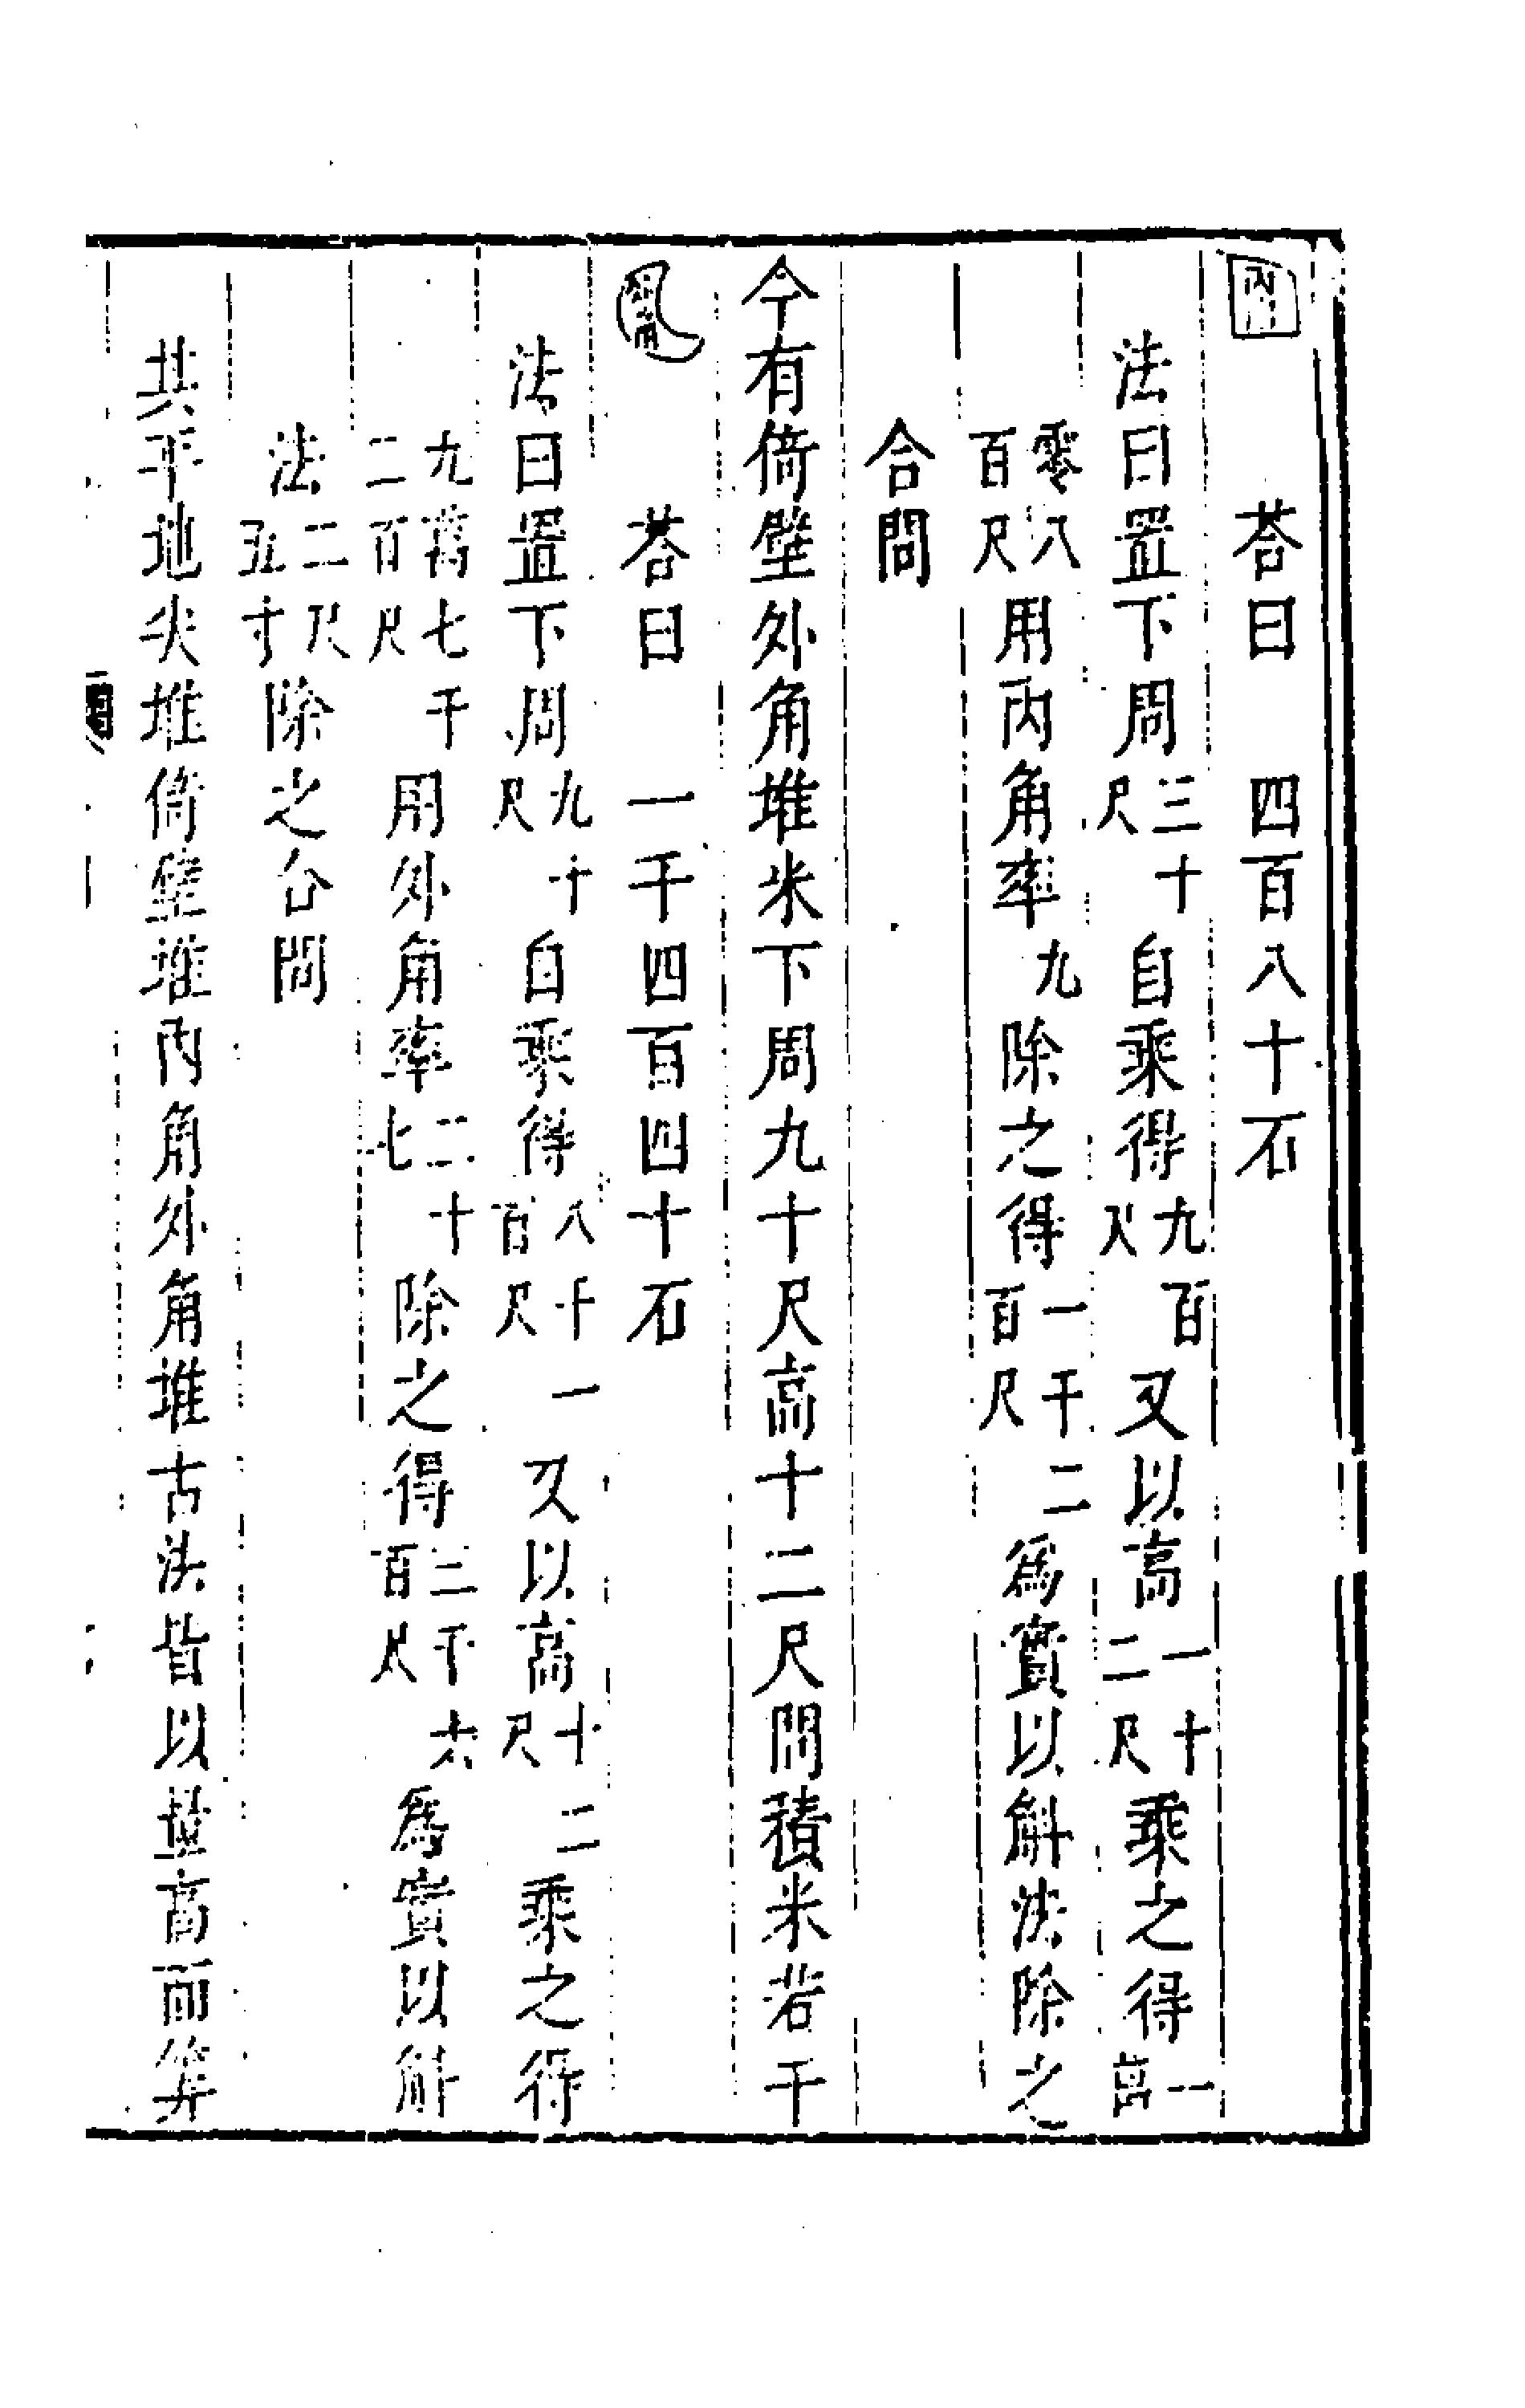 答曰四百八十石
法曰置下周三十尺自乘得九百尺又以高一十二尺乘之得一萬
零八百尺用內角率九除之得一千二百尺為實以斛法除之
合問
今有倚壁外角堆米下周九十尺高十二尺問積米若干
答曰一千四百四十石
法曰置下周九十尺自乘得八千一百尺又以高十二尺乘之得
九萬七千二百尺用外角率二十七除之得三千六百尺為實以斛
法二尺五寸除之合問
共平地尖堆倚壁堆內角外角堆古法皆以量高而筭